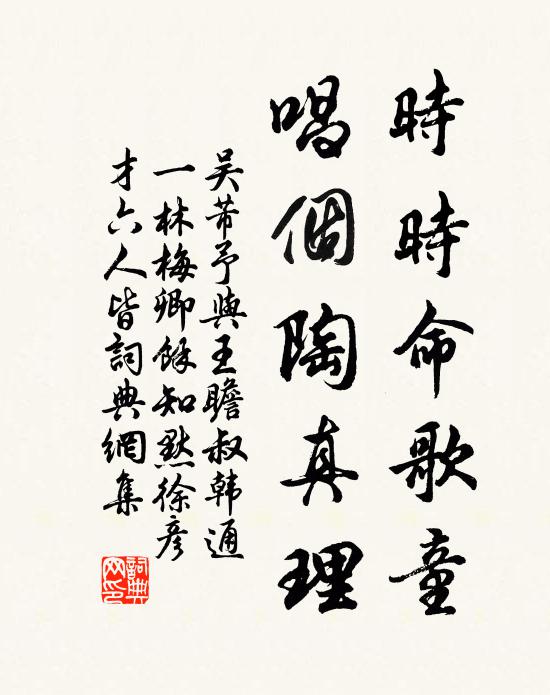 時時命歌童
唱個陶真理
吴芾予與王瞻叔韩通
一林梅卿馀知默徐彦
才六人皆詞典網集
詞典
网印